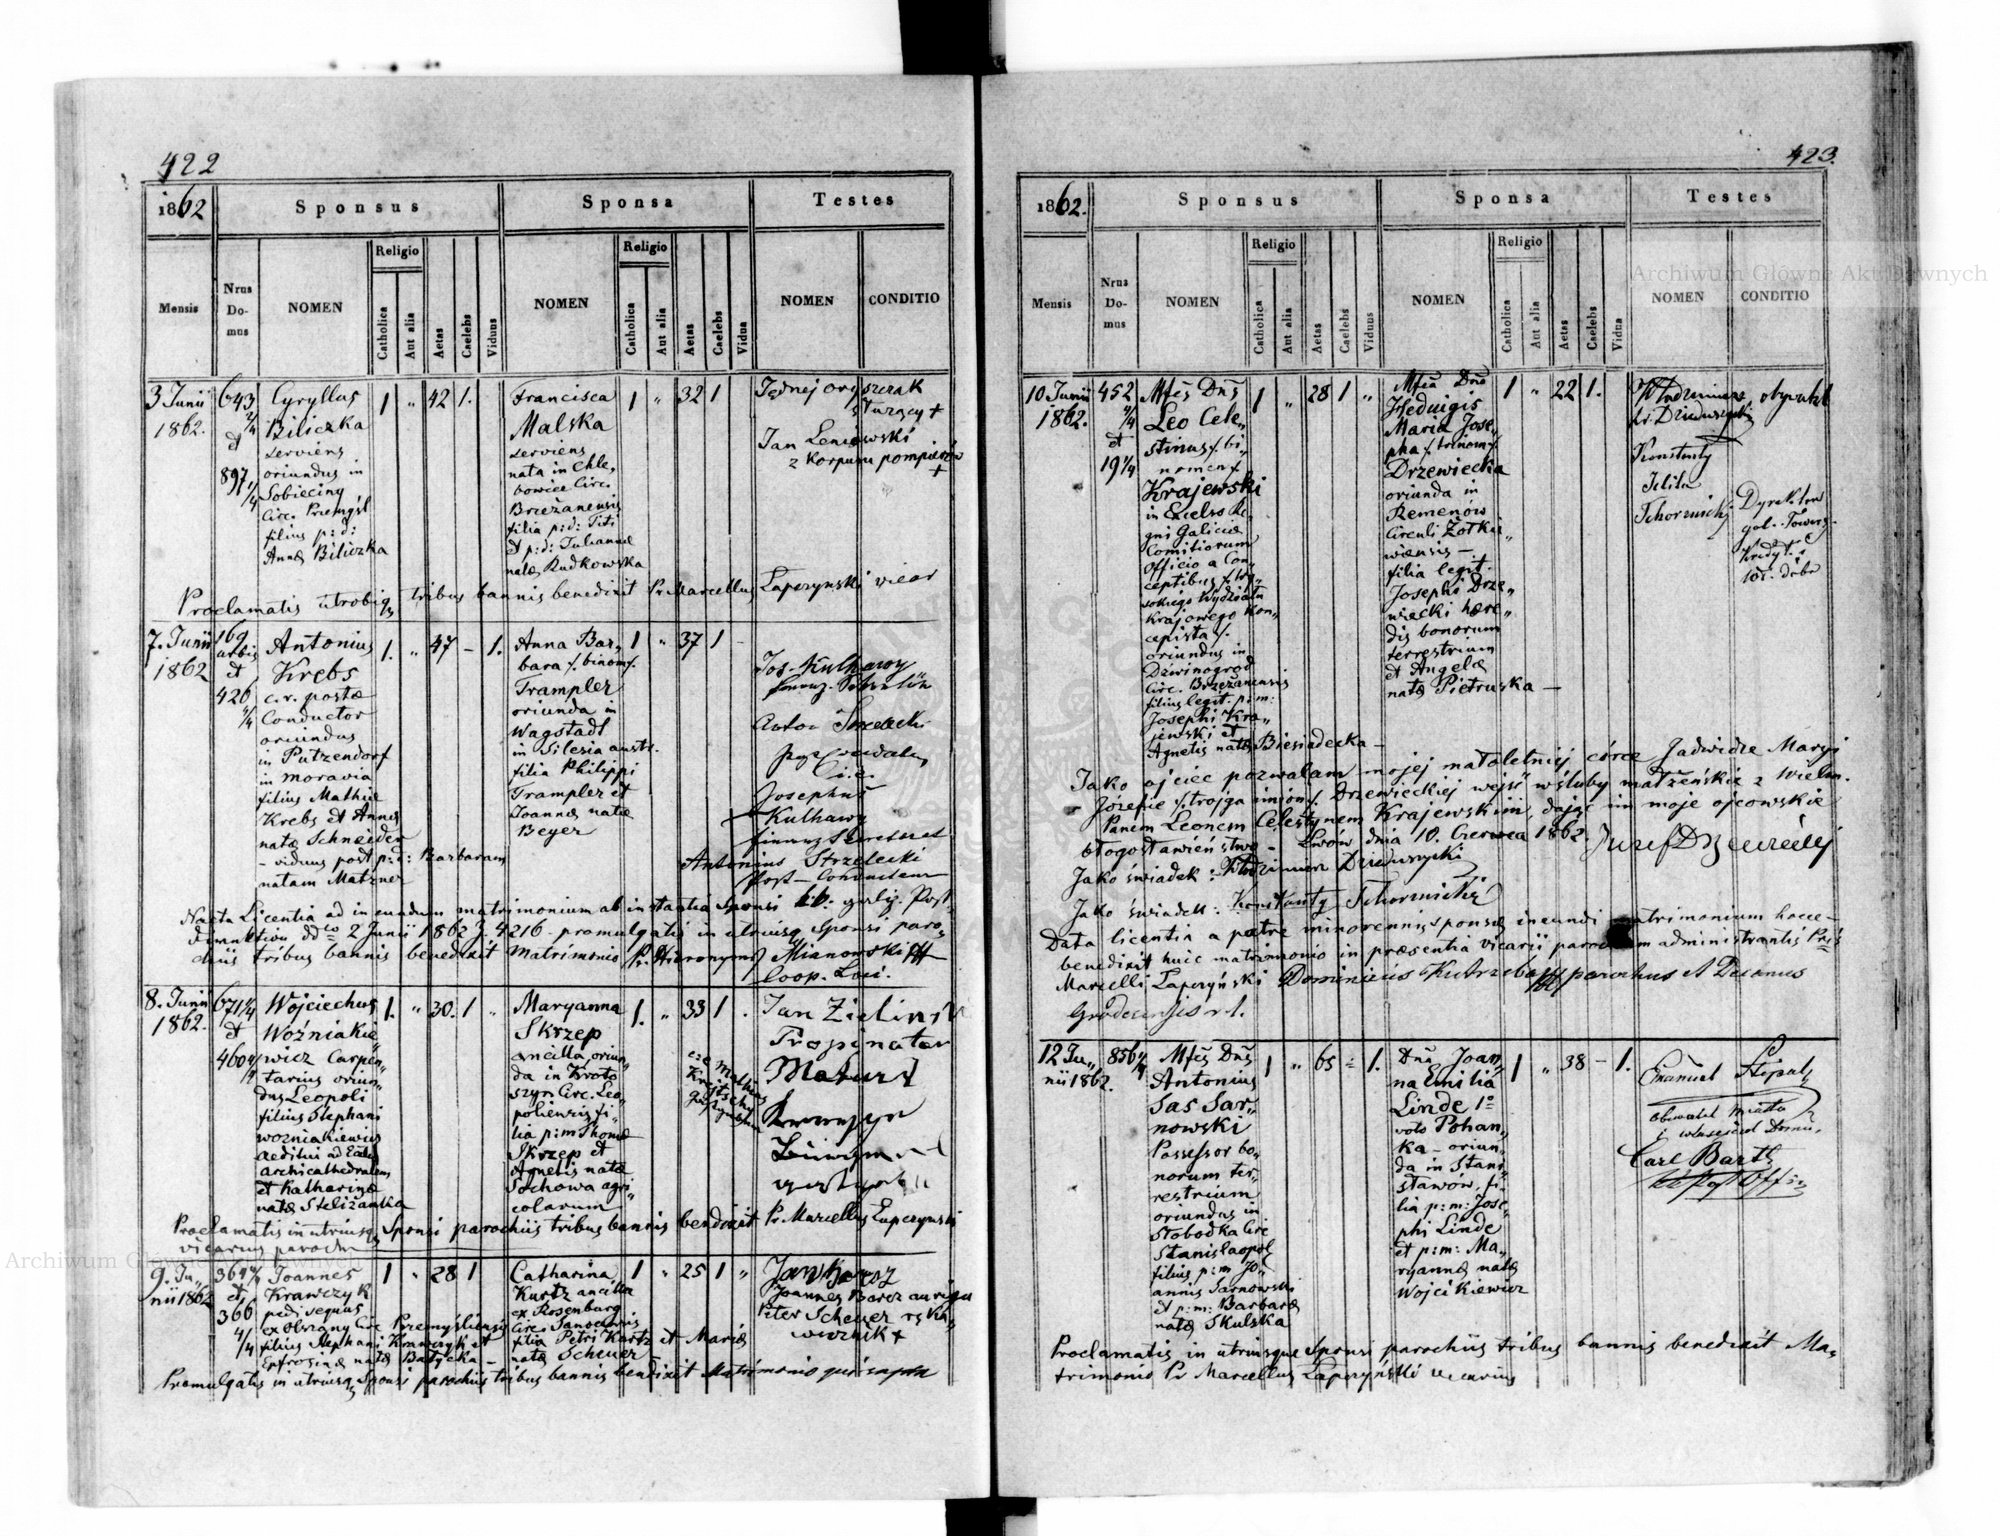 422
1862
Sponsus
Sponsa
Testes
Mensis
Nrus Domus
NOMEN
Religio
Catholica
Aut alia
Aetas
Caelebs
Viduus
NOMEN
Religio
Catholica
Aut alia
Aetas
Caelebs
Vidua
NOMEN
CONDITIO
3 Junii
1862.
643
2/4
et
897
1/4
Cyryllus
Biliczka
serviens
oriundus in
Sobieciny
Circ. Przemysl
filius p: d:
Annæ Biliczka
1 " 42 1.
Francisca
Malska
serviens
nata in Chle„
bowice Circ.
Brzezanensis
filia p: d: Titi
et p: d: Juliannæ
natæ Rudkowska
1 " 32 1
Jan Leniowski
z korpusu pompierów
+
Proclamatis utrobiq tribus bannis benedixit Pr Marcellus Laperynski vicar
7. Junii
1862
169
urbis
et
420
4/4
Antonius
Krebs
c. r. postæ
Conductor
oriundus
in Putzendorf
in moravia
filius Mathiæ
Krebs et Annæ
natæ Schneider
– viduus post p: d: Barbaram
natam Matzner
1. " 47 – 1.
Anna Bar„
bara /. binom/.
Trampler
oriunda in
Wagstadt
in Silesia austr.
filia Philippi
Trampler et
Joannæ natæ
Beyer
1 " 37 1 –
Jos. Kulhawy
i. e.
Josephus
Kulhawy
finanz Secretaret
Antonius Strzelecki
Post – Conducteur
Nacta Licentia ad in eundum matrimonium ab instantia Sponsi
2 Junii 1862 J. 4216 – promulgatis in utriusq Sponsi paro„
chiis tribus bannis benedixit Matrimonio Pr. Hieronymus Mianowski
Coop. Loci.
8. Junii
1862.
671 1/4
et
460 4/4
Wojciechus
Woźniakie„
wicz Carpen„
tarius oriun„
dus Leopoli
filius Stephani
wozniakiewicz
aeditui ad Eccl.
archicathedralem
et Katharinæ
natæ Stelizanka
1. " 30. 1 "
Maryanna
Skrzep
ancilla oriun„
da in Kroto
szyn Circ. Leo„
poliensis fi„
lia p: m Thomæ
Skrzep et
Agnetis natæ
Sochowa agri„
colarum
1. " 33 1 .
Jan Zielinski
Propinator
Proclamatis in utriusq Sponsi parochiis tribus bannis benedixit Pr. Marcellus Laperynski
vicarius parochi
9. Ju„
nii 1862
364 4/4
et
366
4/4
Joannes
Krawczyk
pedisequus
ex Obszany Circ Przemysliensis
filius Stephani Krawczyk et
Eufrosinæ natæ Batycka –
1 " 28 1
Catharina
Kurtz ancilla
ex Rosenburg
Circ. Sanocensis
filia Petri Kurtz et Mariæ
natæ Scheuer –
1 " 25 1 "
Joannes Barcz auriga
Peter Scheuer
+
Promulgatis in utriusq Sponsi parochiis tribus bannis bendixit Matrimonio qui supra
423.
1862.
Sponsus
Sponsa
Testes
Mensis
Nrus Domus
NOMEN
Religio
Catholica
Aut alia
Aetas
Caelebs
Viduus
NOMEN
Religio
Catholica
Aut alia
Aetas
Caelebs
Vidua
NOMEN
CONDITIO
10 Junii
1862.
452
4/4
et
19 1/4
Mfcs Dns
Leo Cele„
stinus /. bi„
nomen /.
Krajewski
in Excelso Re„
gni Galiciæ
Comitiorum
Officio a Con„
ceptibus /. wy„
sokiego Wydziału
Krajowego Kon„
cepista /.
oriundus in
Dzwinogrod
Circ. Brzezanensis
filius legit. p: m:
Josephi Kra„
jewski et
Agnetis natæ Biesiadecka –
1 " 28 1 "
Mfca Dna
Heduigis
Maria Jose„
pha /. trinom /.
Drzewiecka
oriunda in
Remenow
Circuli Żołkie„
wiensis –
filia legit.
Josephi Drze„
wiecki hære„
dis bonorum
terrestrium
et Angelæ
natæ Pietruska –
1 " 22 1.
Włodzimierz, obywatel
hr. Dzieduszycki
Konstanty
Jelita
Tchorznicki
Dyrektor
gal. Towarz.
Kredyt.
Jako ojciec pozwalam mojej małoletniej córce Jadwidze Maryi
Józefie /. trojga imion /. Drzewieckiej wejść w śluby małżeńskie z Wielm.
Panem Leonem Celestynem Krajewskim, dając im moje ojcowskie
błogosławieństwo – Lwów dnia 10. Czerwca 1862. Józef Drzewiecki
Jako świadek: Włodzimierz Dzieduszycki
Jako świadek: Konstanty Tchorznicki
Data licentia a patre minorennis sponsæ ineundi matrimonium hocce –
benedixit huic matrimonio in præsentia vicarii parochiam administrantis Pris
Marcelli Laperyński Dominicus Kutrzeba parochus et Decanus
Grodecensis r. l.
12 Ju„
nii 1862.
856 4/4
Mfcs Dns
Antonius
Sas Sar„
nowski
Possessor bo„
norum ter„
restrium
oriundus in
Słobodka Circ
Stanislaopol
filius p: m Jo„
annis Sarnowski
et p: m: Barbaræ
natæ Skulska
1 " 65 – 1.
Dna Joan„
na Emilia
Linde 1o
voto Pohan„
ka – oriun„
da in Stani„
sławow, fi„
lia p: m: Jose„
phi Linde
et p: m: Ma„
ryannæ natæ
Wojcikiewicz
1 " 38 – 1.
Emanuel
obywatel miasta
i własciciel Domu.
Carl Barth
Proclamatis in utriusque Sponsi parochiis tribus bannis benedixit Ma„
trimonio Pr Marcellus Laperyński vicarius
Archiwum Główne Akt Dawnych
Archiwum Główne Akt Dawnych